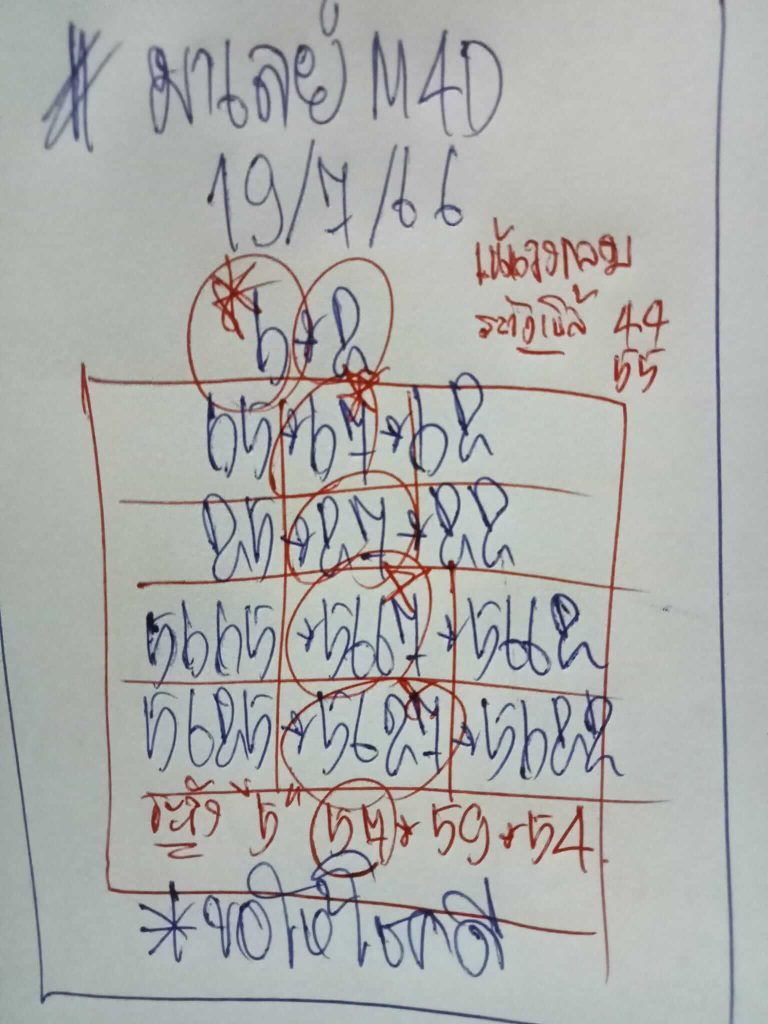 # มาเลย์ M4D
19/7/66
เน้นวงกลม
ระวังเบิ้ล 44
55
*6*8
65*67*68
85*87*88
5665*5667*5668
5685*5687*5688
ระวัง "5" 57*59*54
*ขอให้โชคดี